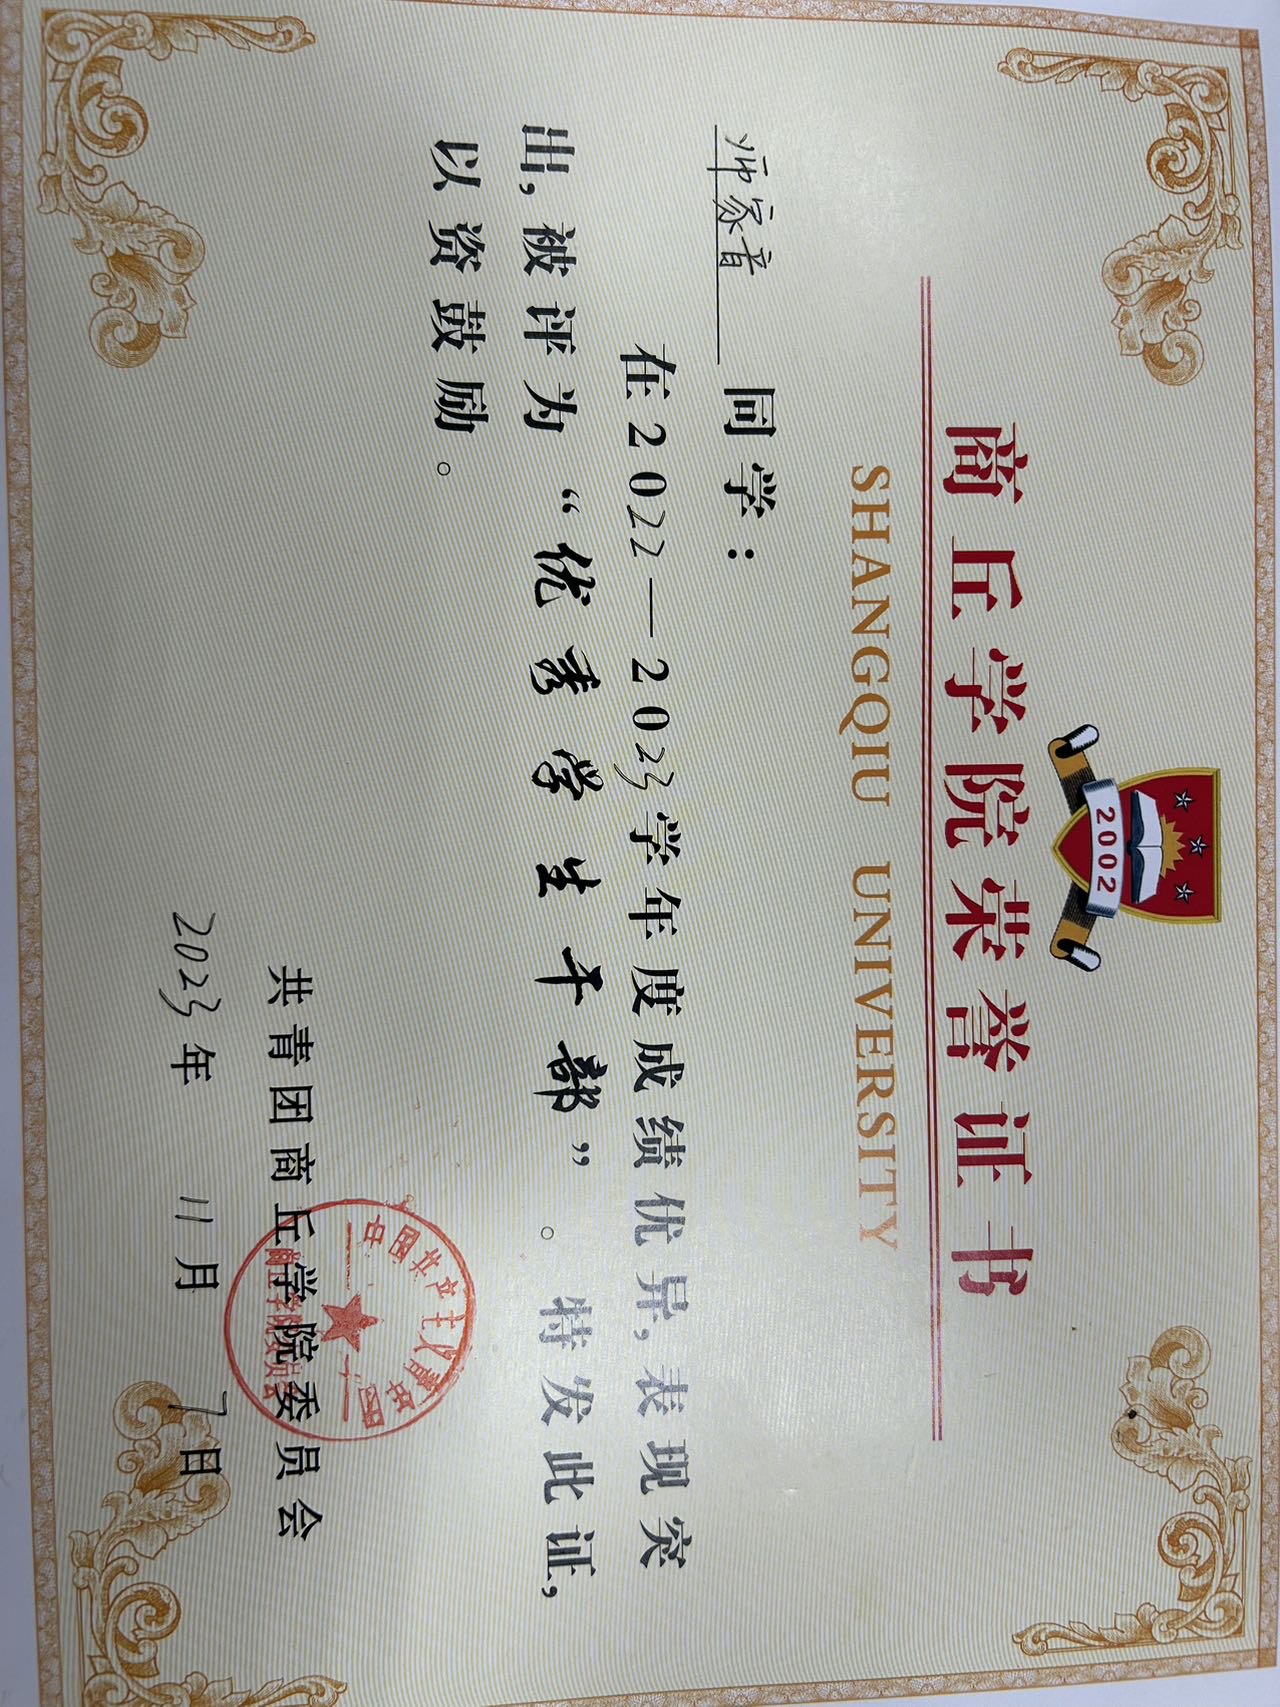 2002
商丘学院荣誉证书
SHANGQIU UNIVERSITY
师家音 同学：
在2022—2023学年度成绩优异，表现突
出，被评为“优秀学生干部”。特发此证，
以资鼓励。
共青团商丘学院委员会
中国共产主义青年团
商丘学院委员会
2023年 11月 7日